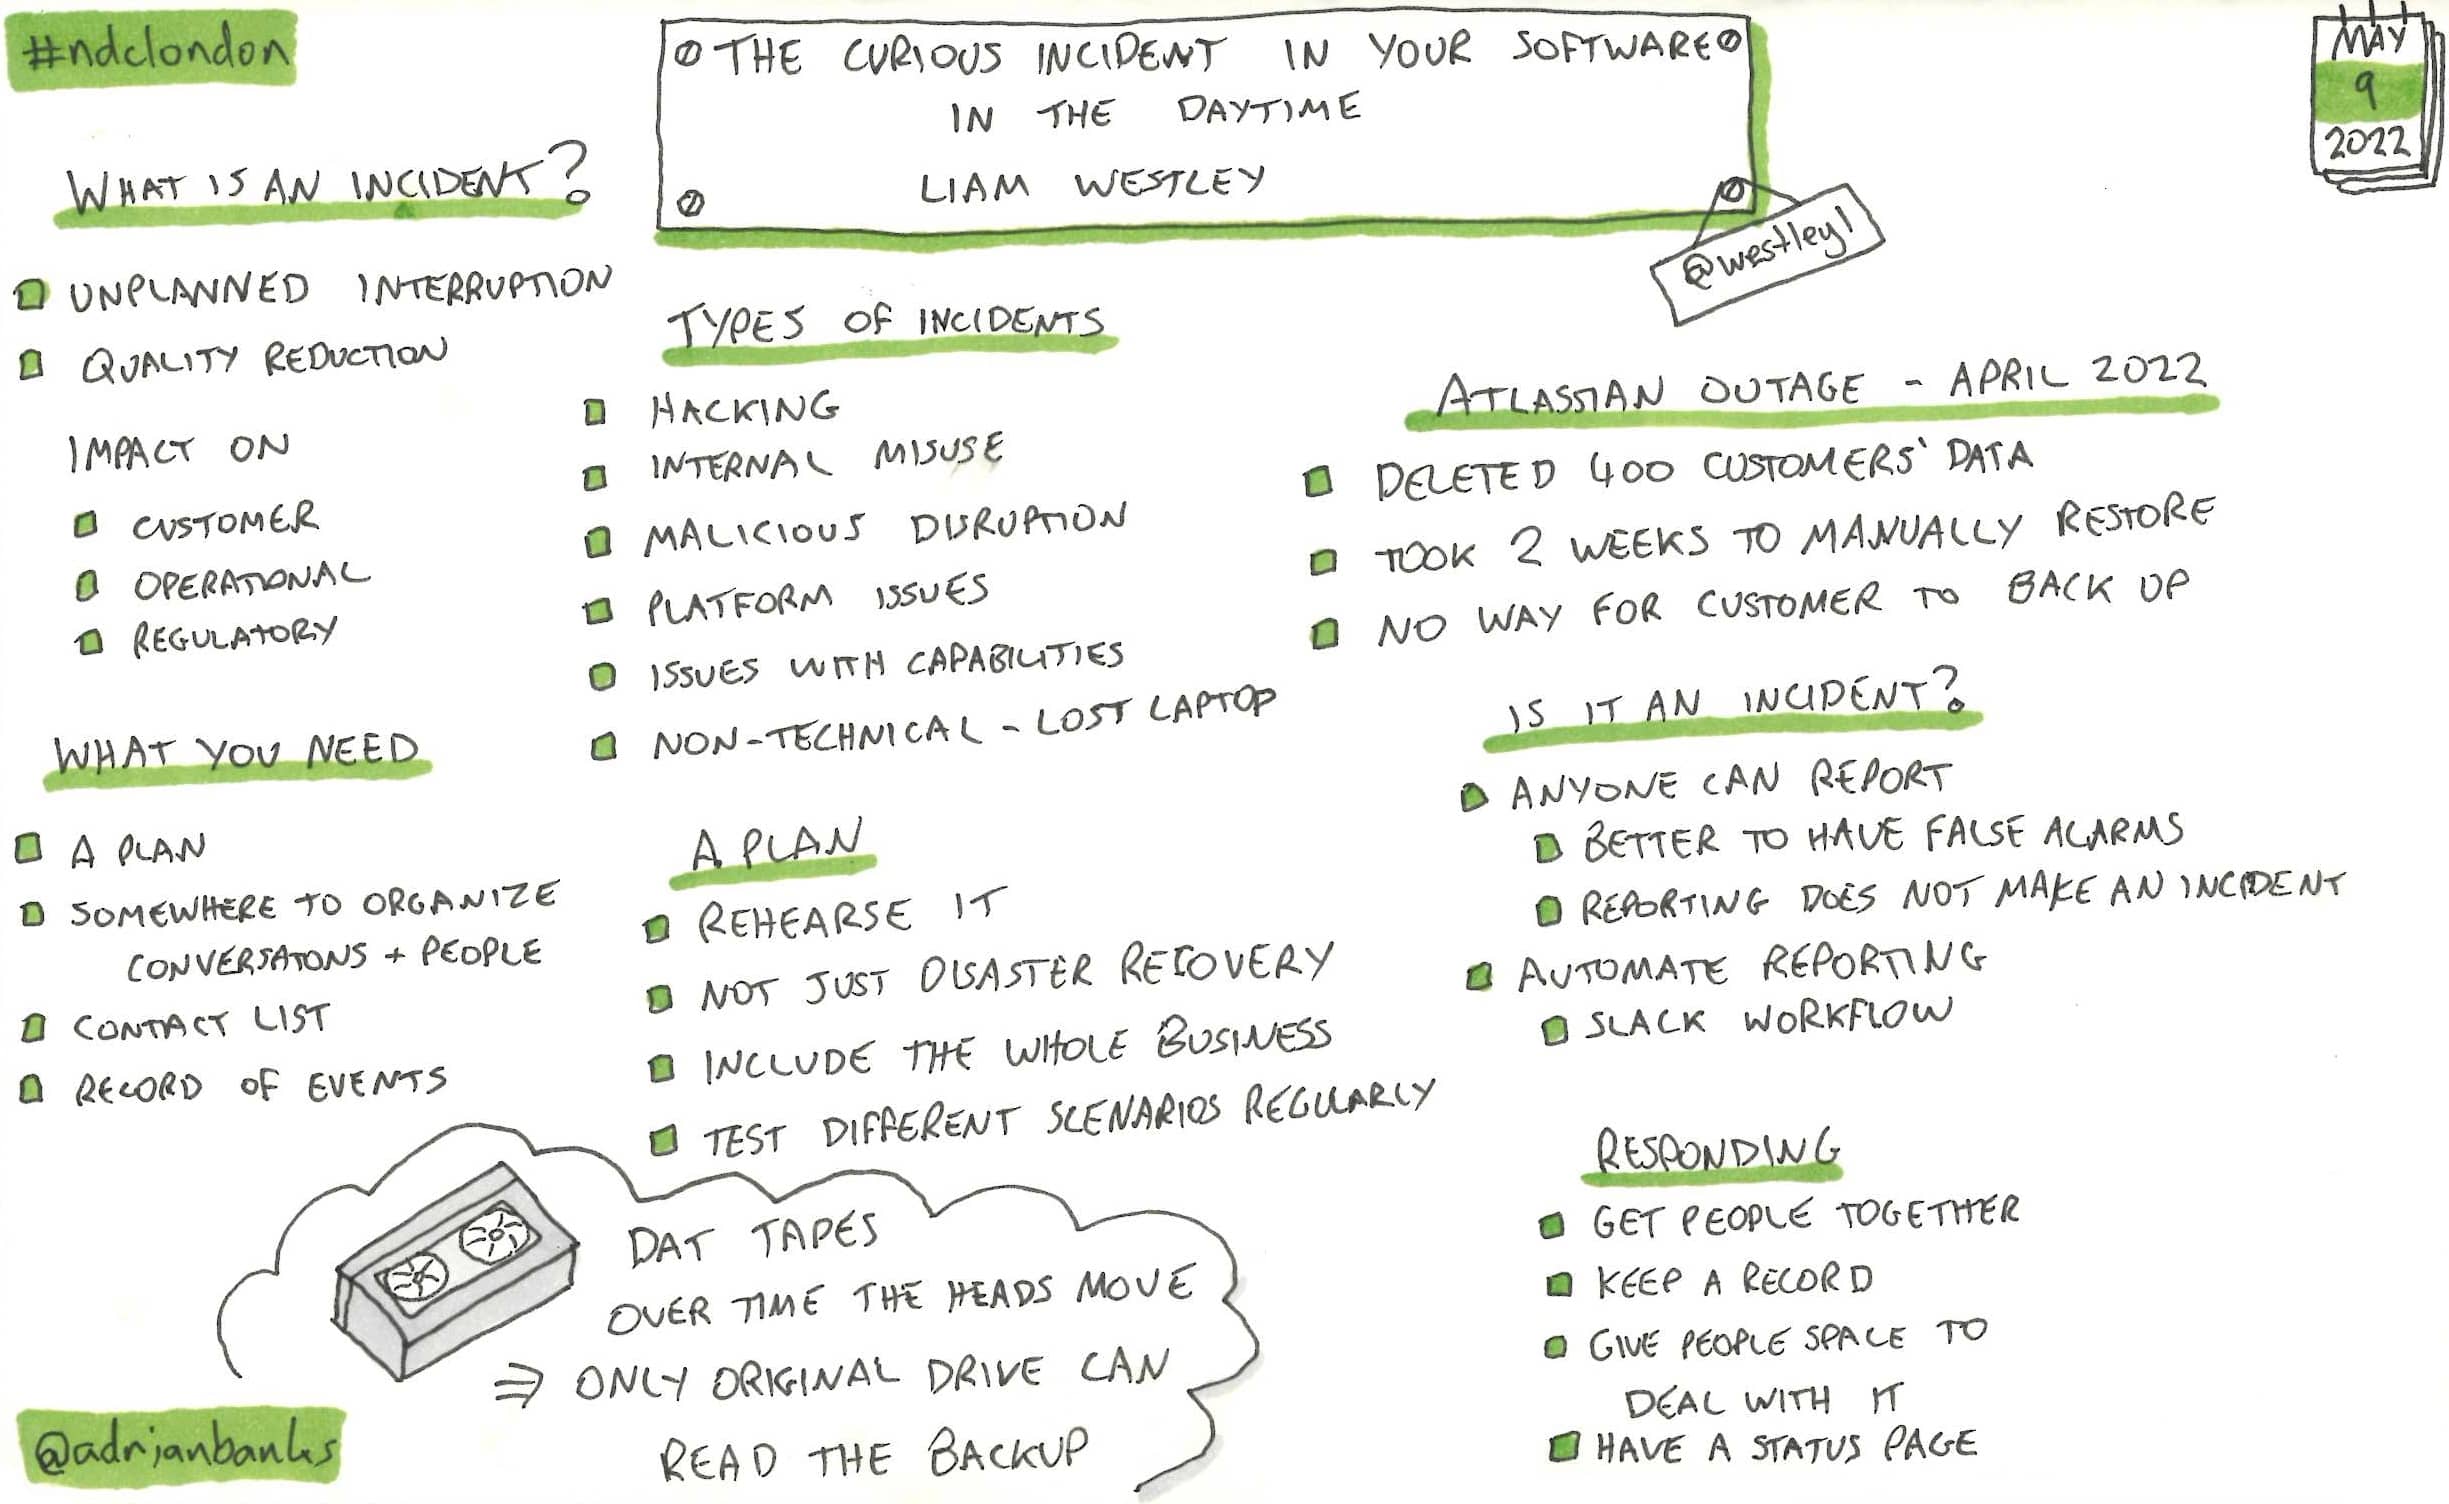 #ndclondon
THE CURIOUS INCIDENT IN YOUR SOFTWARE
IN THE DAYTIME
LIAM WESTLEY
@westleyl
MAY
9
2022
WHAT IS AN INCIDENT?
UNPLANNED INTERRUPTION
QUALITY REDUCTION
IMPACT ON
CUSTOMER
OPERATIONAL
REGULATORY
WHAT YOU NEED
A PLAN
SOMEWHERE TO ORGANIZE
CONVERSATONS + PEOPLE
CONTACT LIST
RECORD OF EVENTS
TYPES OF INCIDENTS
HACKING
INTERNAL MISUSE
MALICIOUS DISRUPTION
PLATFORM ISSUES
ISSUES WITH CAPABILITIES
NON-TECHNICAL - LOST LAPTOP
A PLAN
REHEARSE IT
NOT JUST DISASTER RECOVERY
INCLUDE THE WHOLE BUSINESS
TEST DIFFERENT SCENARIOS REGULARLY
DAT TAPES
OVER TIME THE HEADS MOVE
⇒ ONLY ORIGINAL DRIVE CAN
READ THE BACKUP
ATLASSIAN OUTAGE - APRIL 2022
DELETED 400 CUSTOMERS' DATA
TOOK 2 WEEKS TO MANUALLY RESTORE
NO WAY FOR CUSTOMER TO BACK UP
IS IT AN INCIDENT?
ANYONE CAN REPORT
BETTER TO HAVE FALSE ALARMS
REPORTING DOES NOT MAKE AN INCIDENT
AUTOMATE REPORTING
SLACK WORKFLOW
RESPONDING
GET PEOPLE TOGETHER
KEEP A RECORD
GIVE PEOPLE SPACE TO
DEAL WITH IT
HAVE A STATUS PAGE
@adrianbanks